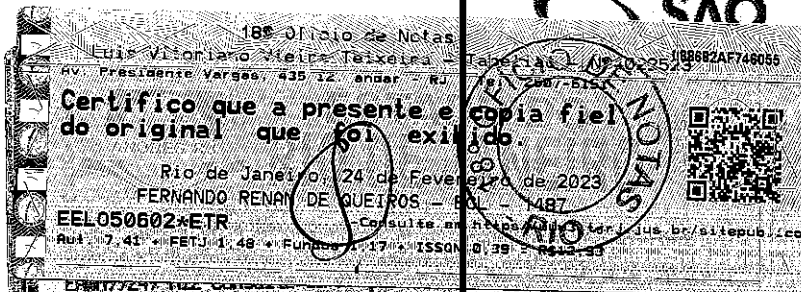 SAO
18º Ofício de Notas
Luis Vitoriano Vieira Teixeira - Tabelião
088682AF746055
Av. Presidente Vargas, 435 12 andar - RJ - Tel
Certifico que a presente e copia fiel
do original que foi exibido.
Rio de Janeiro, 24 de Fevereiro de 2023
FERNANDO RENAN DE QUEIROS - - 1487
EELO50602*ETR
Consulte em
Aut. 7,41 + FETJ 1,48 + 17 + ISSQN 0,39
OFÍCIO DE NOTAS
RIO